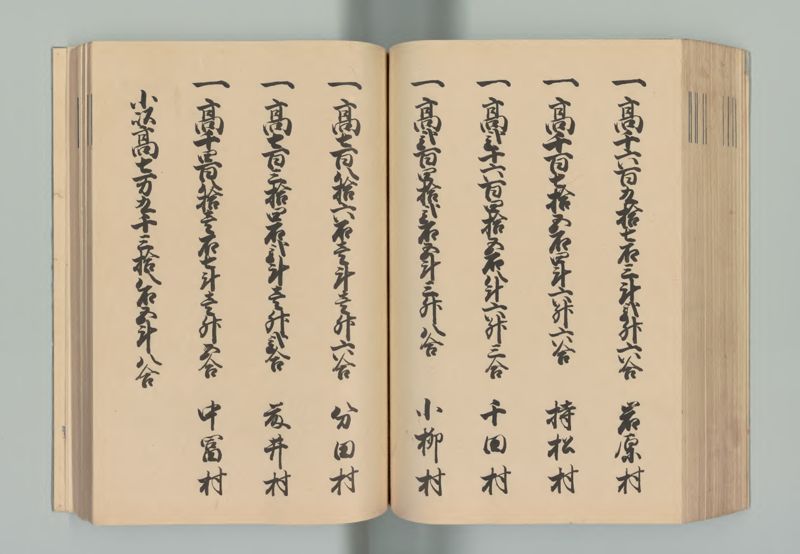 一高千六百九拾七石三斗弐升六合 若原村
一高千百七拾五石四斗六升六合 持松村
一高弐千六百四拾五石八斗六升三合 千田村
一高弐百四拾弐石五斗三升八合 小柳村
一高七百八拾六石壱斗壱升六合 分田村
一高七百三拾四石弐斗壱升弐合 藤井村
一高千四百八拾壱石七斗壱升五合 中冨村
小以高七万九千三拾八石五斗八合